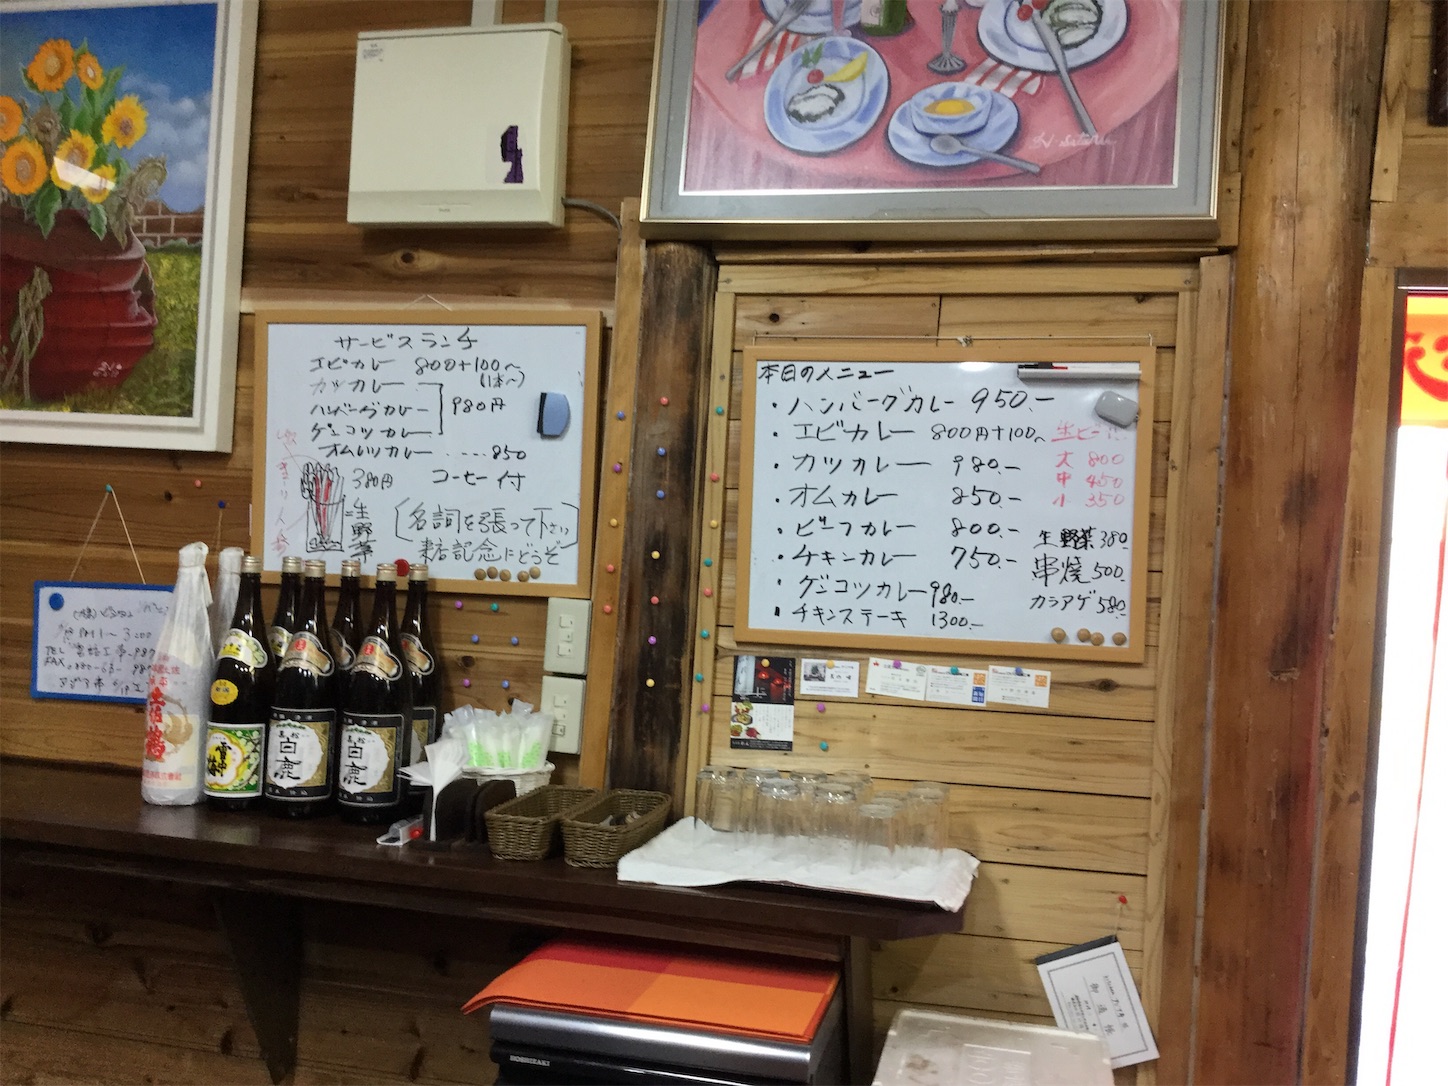 サービスランチ
エビカレー 800+100〜
(1本〜)
カツカレー
ハンバーグカレー 980円
ゲンコツカレー
オムレツカレー ..... 850
380円 コーヒー付
=生野菜
(名詞を張って下さい
来店記念にどうぞ)
本日のメニュー
・ハンバーグカレー 950.-
・エビカレー 800円+100〜
・カツカレー 980.-
・オムカレー 850.-
・ビーフカレー 800.-
・チキンカレー 750.-
・ゲンコツカレー 980.-
・チキンステーキ 1300.-
生ビール
大 800
中 450
小 350
生野菜 380.
串焼 500.
カラアゲ 580.-
TEL
FAX
土佐鶴
白鹿
白鹿
HOSHIZAKI